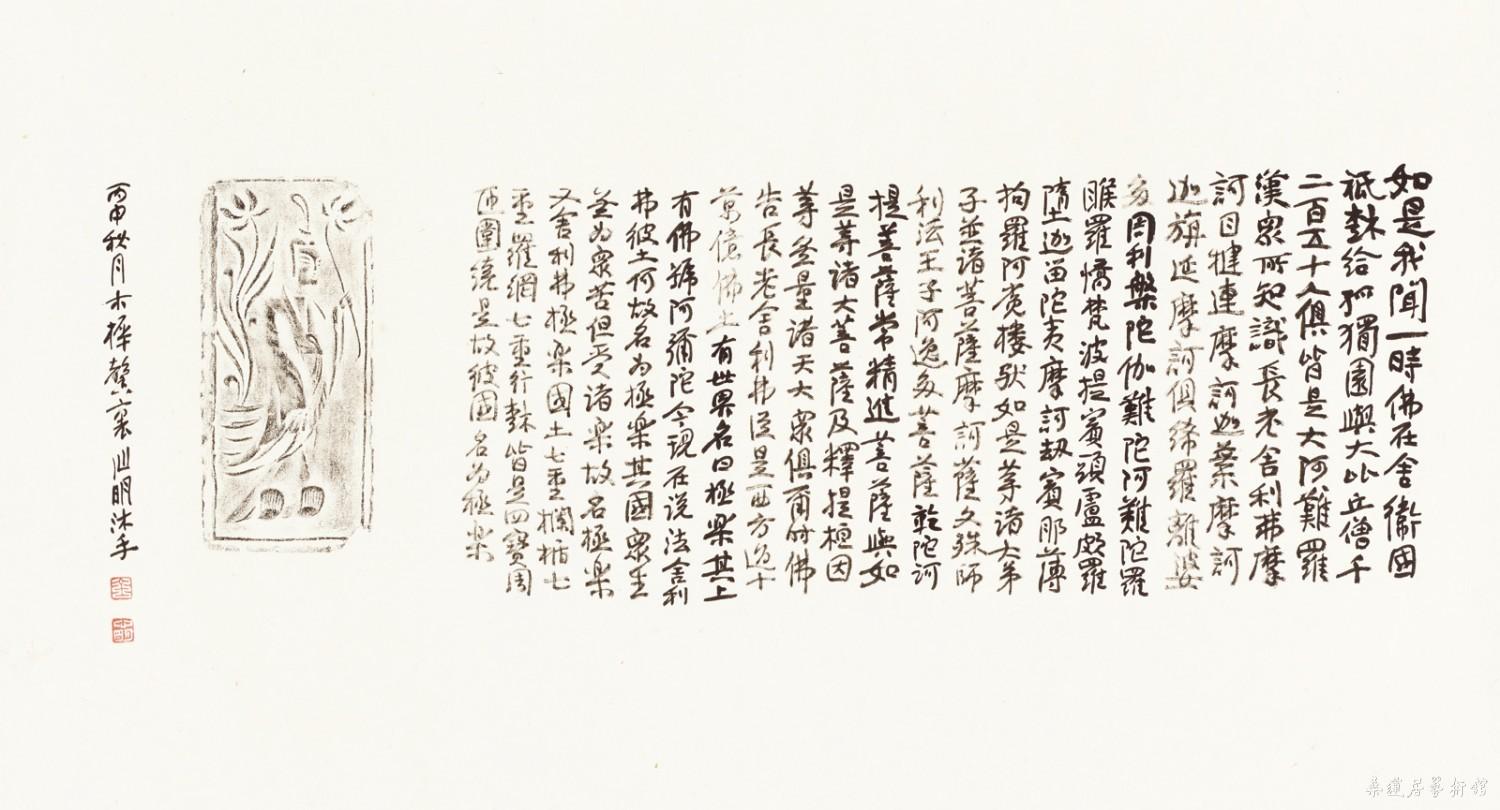 如是我聞一時佛在舍衞國
祗樹給孤獨園與大比丘僧千
二百五十人俱皆是大阿難羅
漢衆所知識長老舍利弗摩
訶目犍連摩訶迦葉摩訶
迦旃延摩訶俱絺羅離婆
多周利槃陀伽難陀阿難陀羅
睺羅憍梵波提賓頭盧頗羅
墮土迦留陀夷摩訶劫賓那薄
拘羅阿㝹樓馱如是等諸大弟
子並諸菩薩摩訶薩文殊師
利法王子阿逸多菩薩乾陀訶
提菩薩常精進菩薩與如
是等諸大菩薩及釋提桓因
等無量諸天大衆俱爾時佛
告長老舍利弗從是西方過十
萬億佛土有世界名曰極樂其上
有佛號阿彌陀今現在说法舍利
弗彼土何故名为極樂其國衆生
無为衆苦但受诸樂故名極樂
又舍利弗極樂國土七重欄楯七
重羅網七重行樹皆是四寶周
匝圍繞是故彼國名为極樂
丙申秋月木樨馨裏山明沐手
桑蓮居藝術館